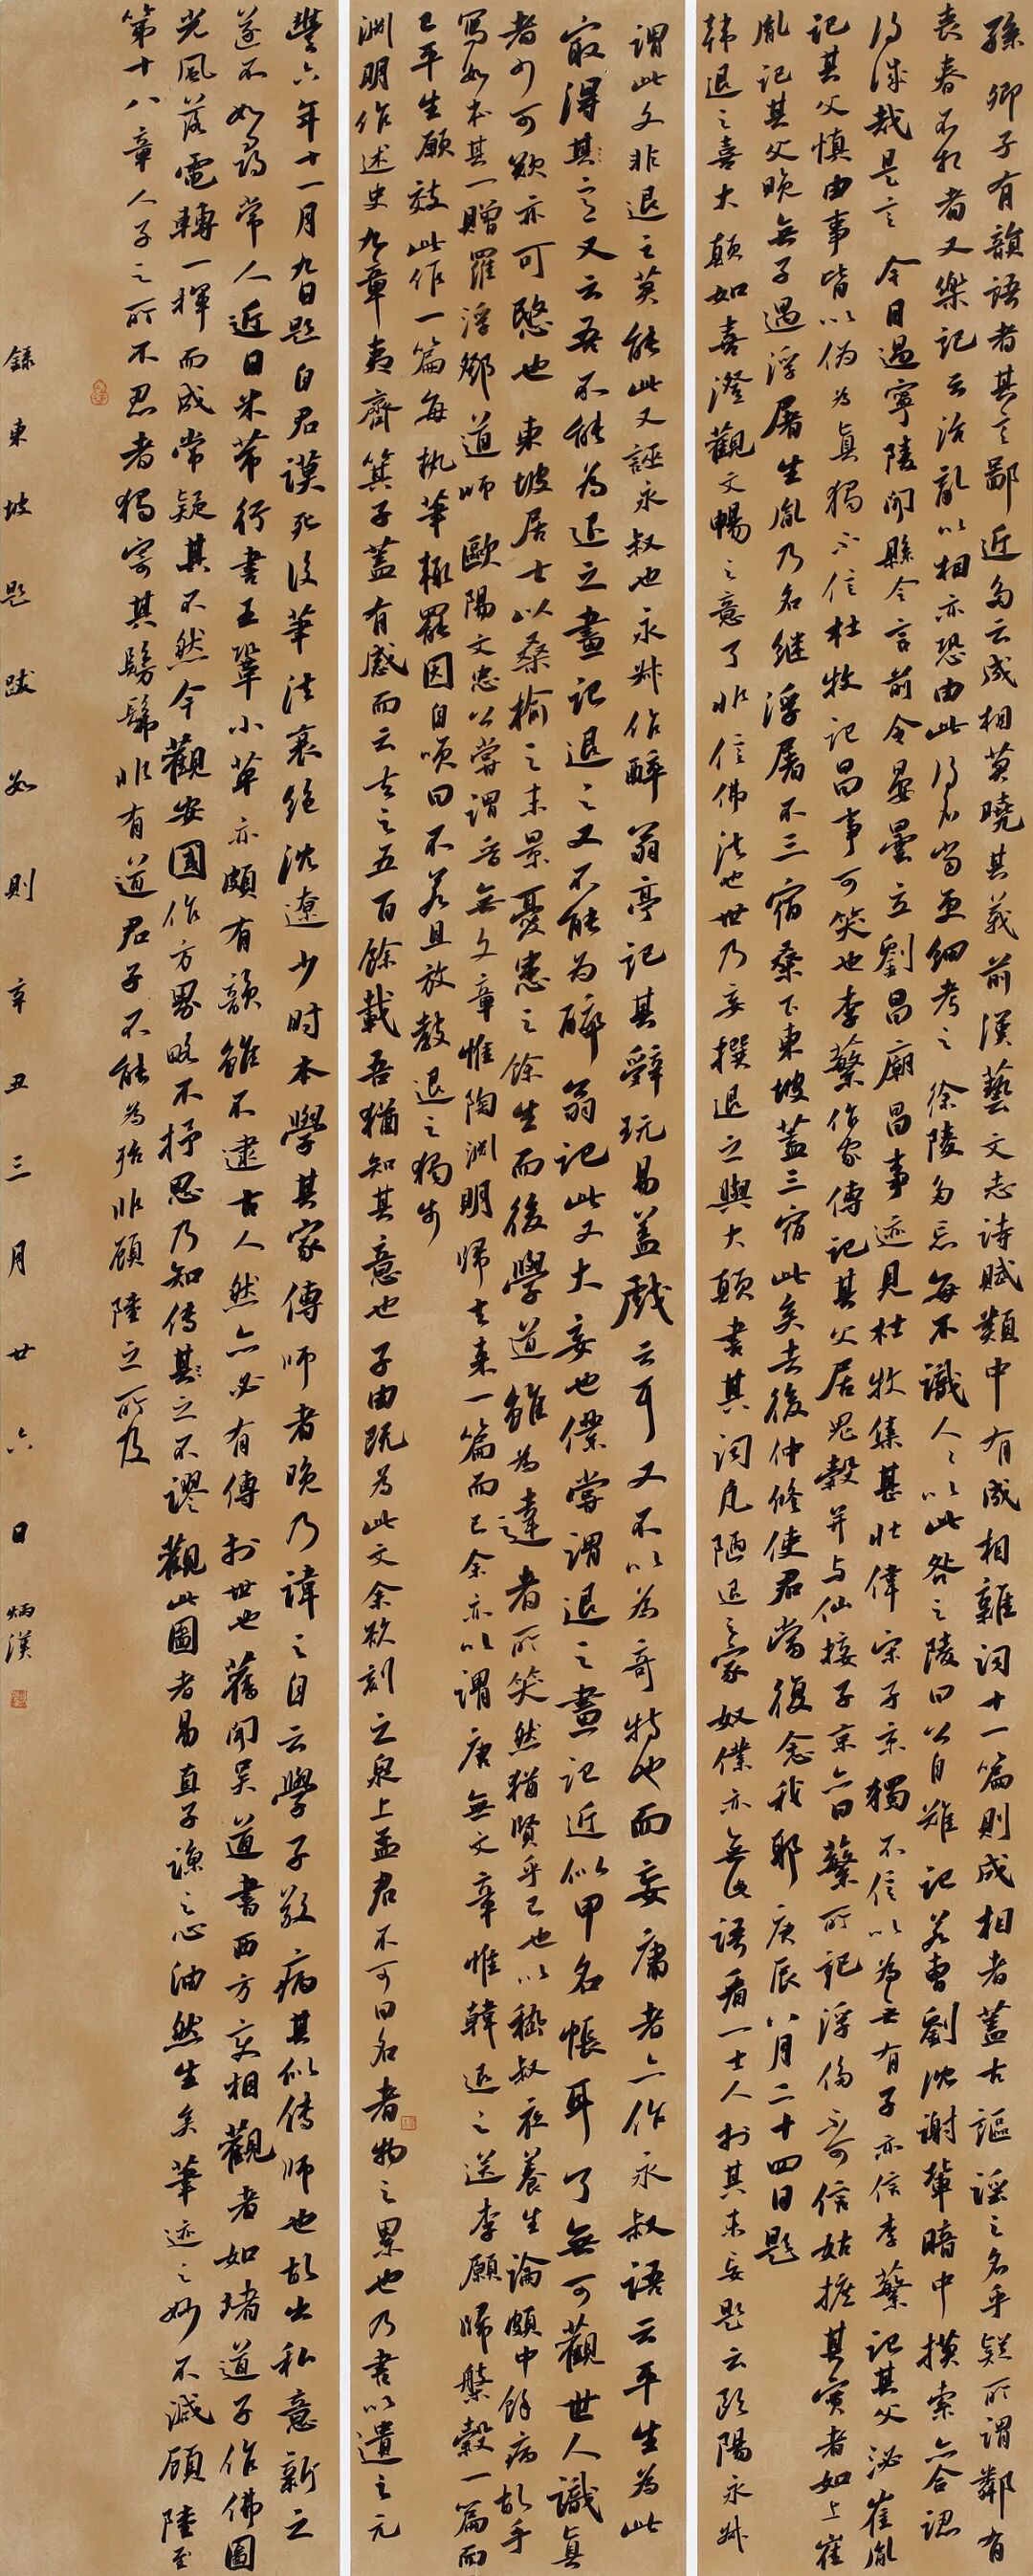 孫卿子有韻語者其言鄙近多云成相莫曉其義前漢藝文志詩賦類中有成相雜詞十一篇則成相者蓋古謳謠之名乎疑所謂鄰有
喪舂不相者又樂記云治亂以相亦恐由此得名當更細考之 徐陵多忘每不識人人以此咎之陵曰公自難記若曹劉沈謝輩暗中摸索亦合認
得誠哉是言 今日過寧陵聞縣令言前令晏曇立劉昌廟昌事迹見杜牧集甚壯偉宋子京獨不信以為無有子亦信李蘩記其父泌崔胤
記其父慎由事皆以偽為真獨不信杜牧記昌事可笑也李蘩作家傳記其父居鬼穀并与仙接子京亦曰蘩所記浮侈不可信姑摭其實者如上崔
胤記其父晚無子遇浮屠生胤乃名繼浮屠不三宿桑下東坡蓋三宿此矣去後仲修使君當復念我耶 庚辰八月二十四日題
韓退之喜大顛如喜澄觀文暢之意了非信佛法也世乃妄撰退之與大顛書其詞凡陋退之家奴僕亦無此語有一士人於其末妄題云歐陽永叔
謂此文非退之莫能此又誣永叔也永叔作醉翁亭記其辭玩易蓋戲云耳又不以為奇特也而妄庸者亦作永叔語云平生為此
最得其意又云吾不能為退之畫記退之又不能為醉翁記此又大妄也僕嘗謂退之畫記近似甲名帳耳了無可觀世人識真
者少可歎亦可愍也 東坡居士以桑榆之末景憂患之餘生而後學道雖為達者所笑然猶賢乎已也以嵇叔夜養生論頗中餘病故手
寫如本其一贈羅浮鄧道師 歐陽文忠公嘗謂晉無文章惟陶淵明歸去來一篇而已余亦以謂唐無文章惟韓退之送李願歸盤穀一篇而
已平生願效此作一篇每執筆輒罷因自笑曰不若且放教退之獨步
淵明作述史九章夷齊箕子蓋有感而云去之五百餘載吾猶知其意也 子由既為此文余欲刻之泉上孟君不可曰名者物之累也乃書以遺之元
豐六年十一月九日題 自君謨死後筆法衰絕沈遼少時本學其家傳師者晚乃諱之自云學子敬病其似傳師也故出私意新之
遂不如尋常人近日米芾行書王鞏小草亦頗有韻雖不逮古人然亦必有傳於世也 舊聞吳道書西方變相觀者如堵道子作佛圖
光風落電轉一揮而成常疑其不然今觀安國作方界略不抒思乃知傳其之不謬 觀此圖者易直子諒之心油然生矣筆迹之妙不減顧陸至
第十八章人子之所不忍者獨寄其髣髴非有道君子不能為殆非顧陸之所及
錄東坡題跋如則辛丑三月廿六日炳漢